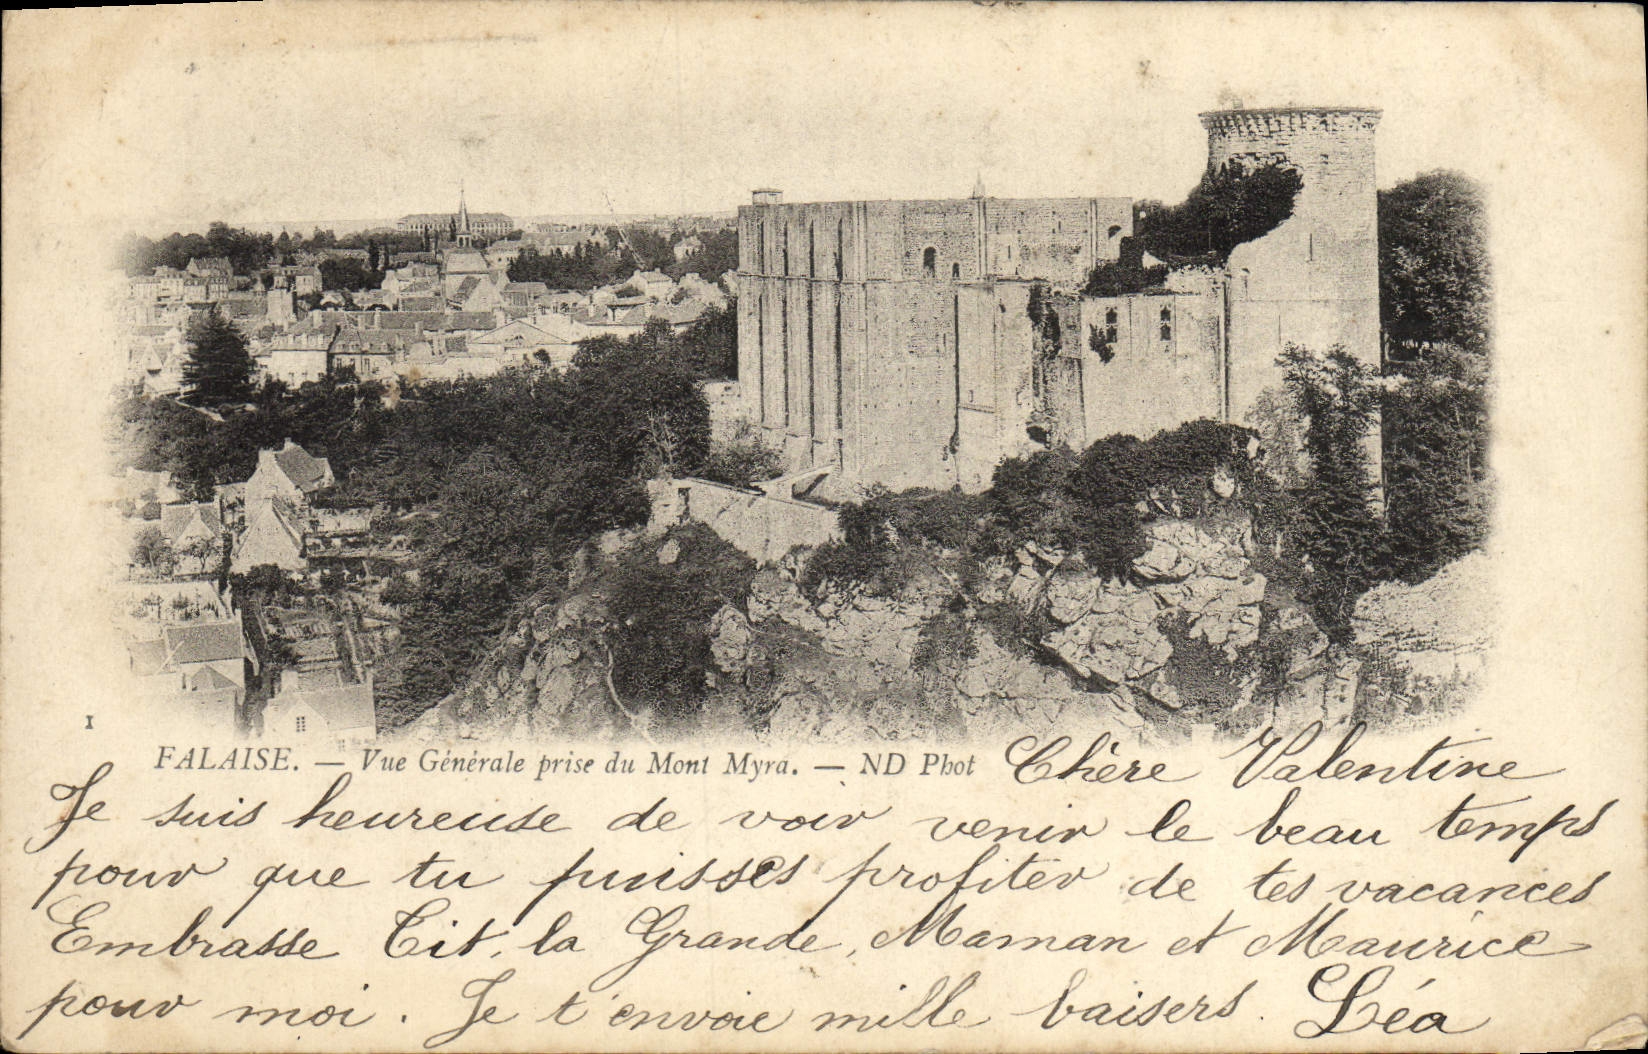 1
FALAISE. — Vue Générale prise du Mont Myra. — ND Phot
Chère Valentine
Je suis heureuse de voir venir le beau temps
pour que tu puisses profiter de tes vacances
Embrasse Tit, la Grande, Maman et Maurice
pour moi. Je t'envoie mille baisers. Léa